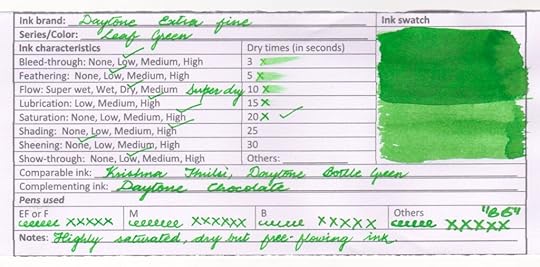 Ink brand: Daytone Extra fine Ink swatch
Series/Color: Leaf Green
Ink characteristics Dry times (in seconds)
Bleed-through: None, Low, Medium, High 3 x
Feathering: None, Low, Medium, High 5 x
Flow: Super wet, Wet, Dry, Medium Super dry 10 x
Lubrication: Low, Medium, High 15 x
Saturation: None, Low, Medium, High 20 x ✓
Shading: None, Low, Medium, High 25
Sheening: None, Low, Medium, High 30
Show-through: None, Low, Medium, High Others:
Comparable ink: Krishna Thulsi, Daytone Bottle Green
Complementing ink: Daytone Chocolate
Pens used
EF or F M B Others "BB"
eeeeeee xxxxx eeeeeee xxxxxx eeeee xxxxx eeeee xxxxx
Notes: Highly saturated, dry but free-flowing ink.